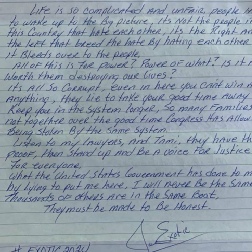 Life is so complicated and unfair, people need
to wake up to the Big picture, its Not the people in
this Country that hate each other, its the Right and
the left that breed the hate By hating each other
it Bleeds over to the people.
All of this is for Power? Power of what? Is it
worth them destroying our lives?
Its All so Corrupt, Even in here you Cant win
Anything, they lie to take your good time Away
Keep you in the System longer, so many Families
not together over the good time Congress has Allow
Being stolen By the Same System.
Listen to my lawyers, And Tami, they have the
Proof, then Stand up and Be A voice for Justice
for everyone.
What the United States Government has done to me
by lying to put me here, I will never Be the Same
Thousands of others Are in the Same Boat,
They must be made to Be Honest.
Exotic